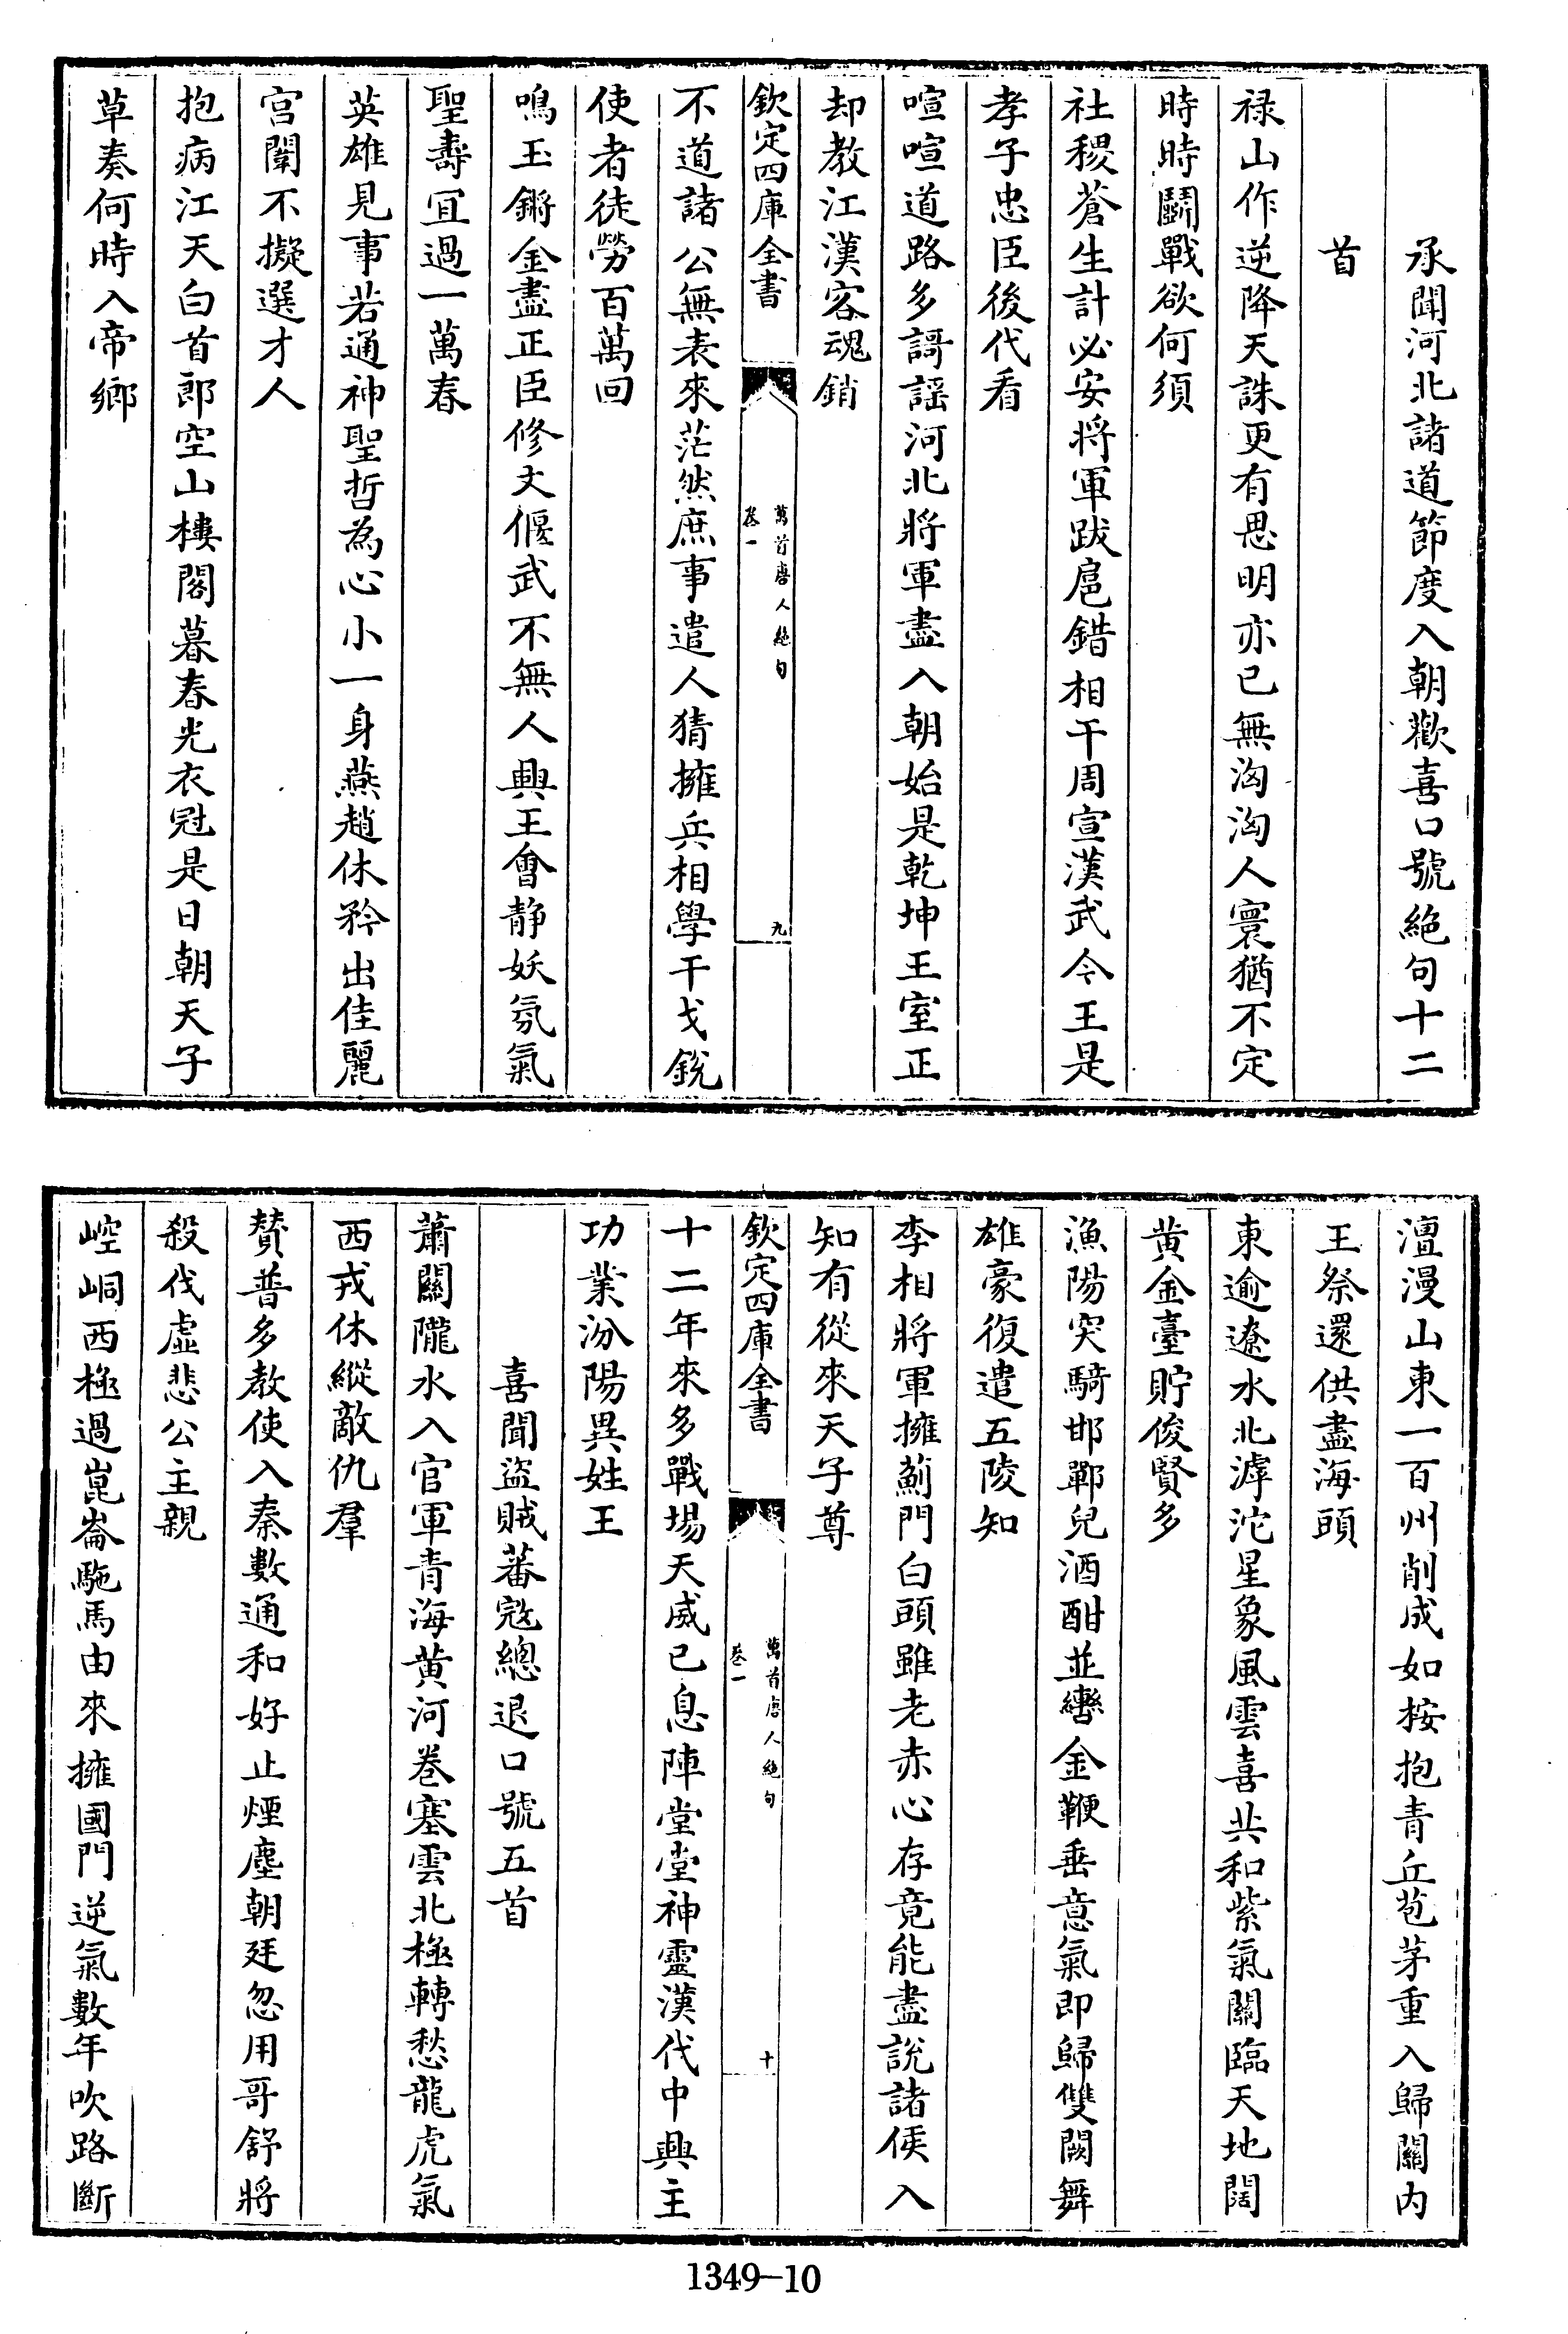 承聞河北諸道節度入朝歡喜口號絕句十二
首
禄山作逆降天誅更有思明亦已無洶洶人寰猶不定
時時鬭戰欲何須
社稷蒼生計必安將軍跋扈錯相干周宣漢武今王是
孝子忠臣後代看
喧喧道路多謌謡河北將軍盡入朝始是乾坤王室正
却教江漢客魂銷
欽定四庫全書
萬首唐人絶句
卷一
九
不道諸公無表來茫然庶事遣人猜擁兵相學干戈銳
使者徒勞百萬回
鳴玉鏘金盡正臣修文偃武不無人興王會静妖氛氣
聖壽宜過一萬春
英雄見事若通神聖哲為心小一身燕趙休矜出佳麗
宫闈不擬選才人
抱病江天白首郎空山樓閣暮春光衣冠是日朝天子
草奏何時入帝鄉
澶漫山東一百州削成如桉抱青丘苞茅重入歸關内
王祭還供盡海頭
東逾遼水北滹沱星象風雲喜共和紫氣關臨天地闊
黄金臺貯俊賢多
漁陽突騎邯鄲兒酒酣並轡金鞭垂意氣即歸雙闕舞
雄豪復遣五陵知
李相將軍擁薊門白頭雖老赤心存竟能盡說諸侯入
知有從來天子尊
欽定四庫全書
萬首唐人絶句
卷一
十
十二年來多戰場天威已息陣堂堂神靈漢代中興主
功業汾陽異姓王
喜聞盜賊蕃寇總退口號五首
蕭關隴水入官軍青海黄河卷塞雲北極轉愁龍虎氣
西戎休縱敵仇羣
贊普多教使入秦數通和好止煙塵朝廷忽用哥舒將
殺伐虚悲公主親
崆峒西極過崑崙駞馬由來擁國門逆氣數年吹路斷
1349-10